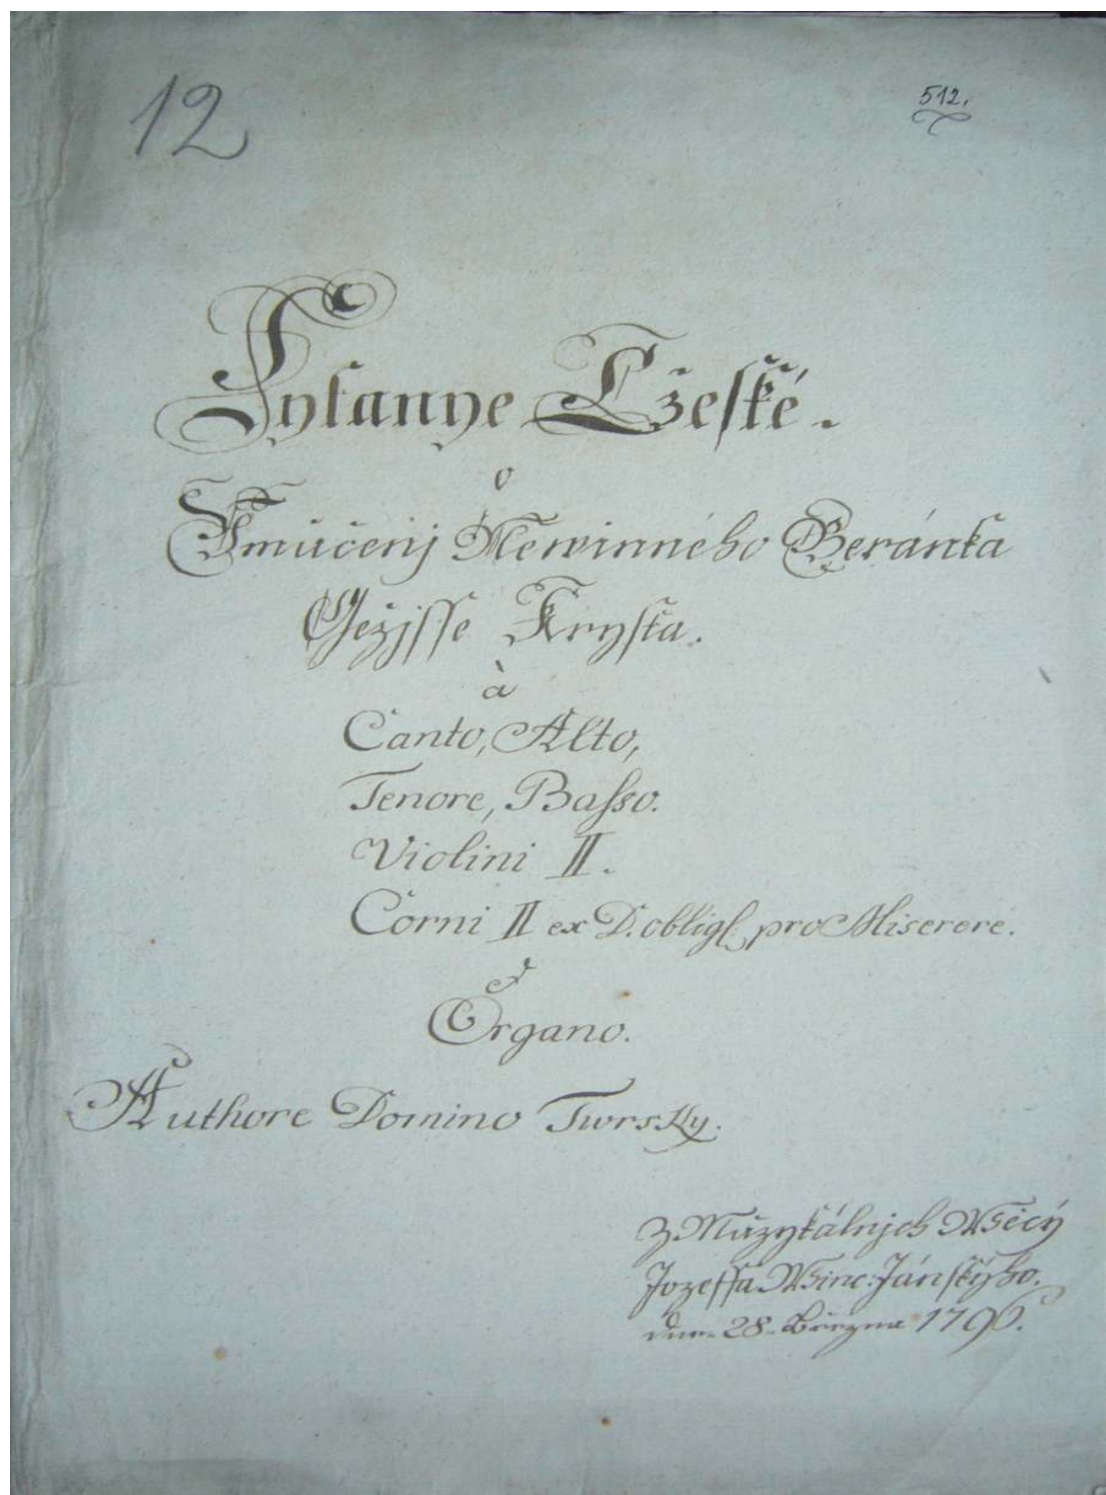 12
512.
Lytanye Cžeské.
o
Umučenj Newinného Beránka
Gežjsse Krysta.
à
Canto, Alto,
Tenore, Basso.
Violini II.
Corni II ex D. obligl: pro Miserere.
Organo.
Authore Domino Twrsky.
Z Muzykálnjch Wěcý
Jozeffa Winc: Jánskýho.
dne 28. Března 1796.